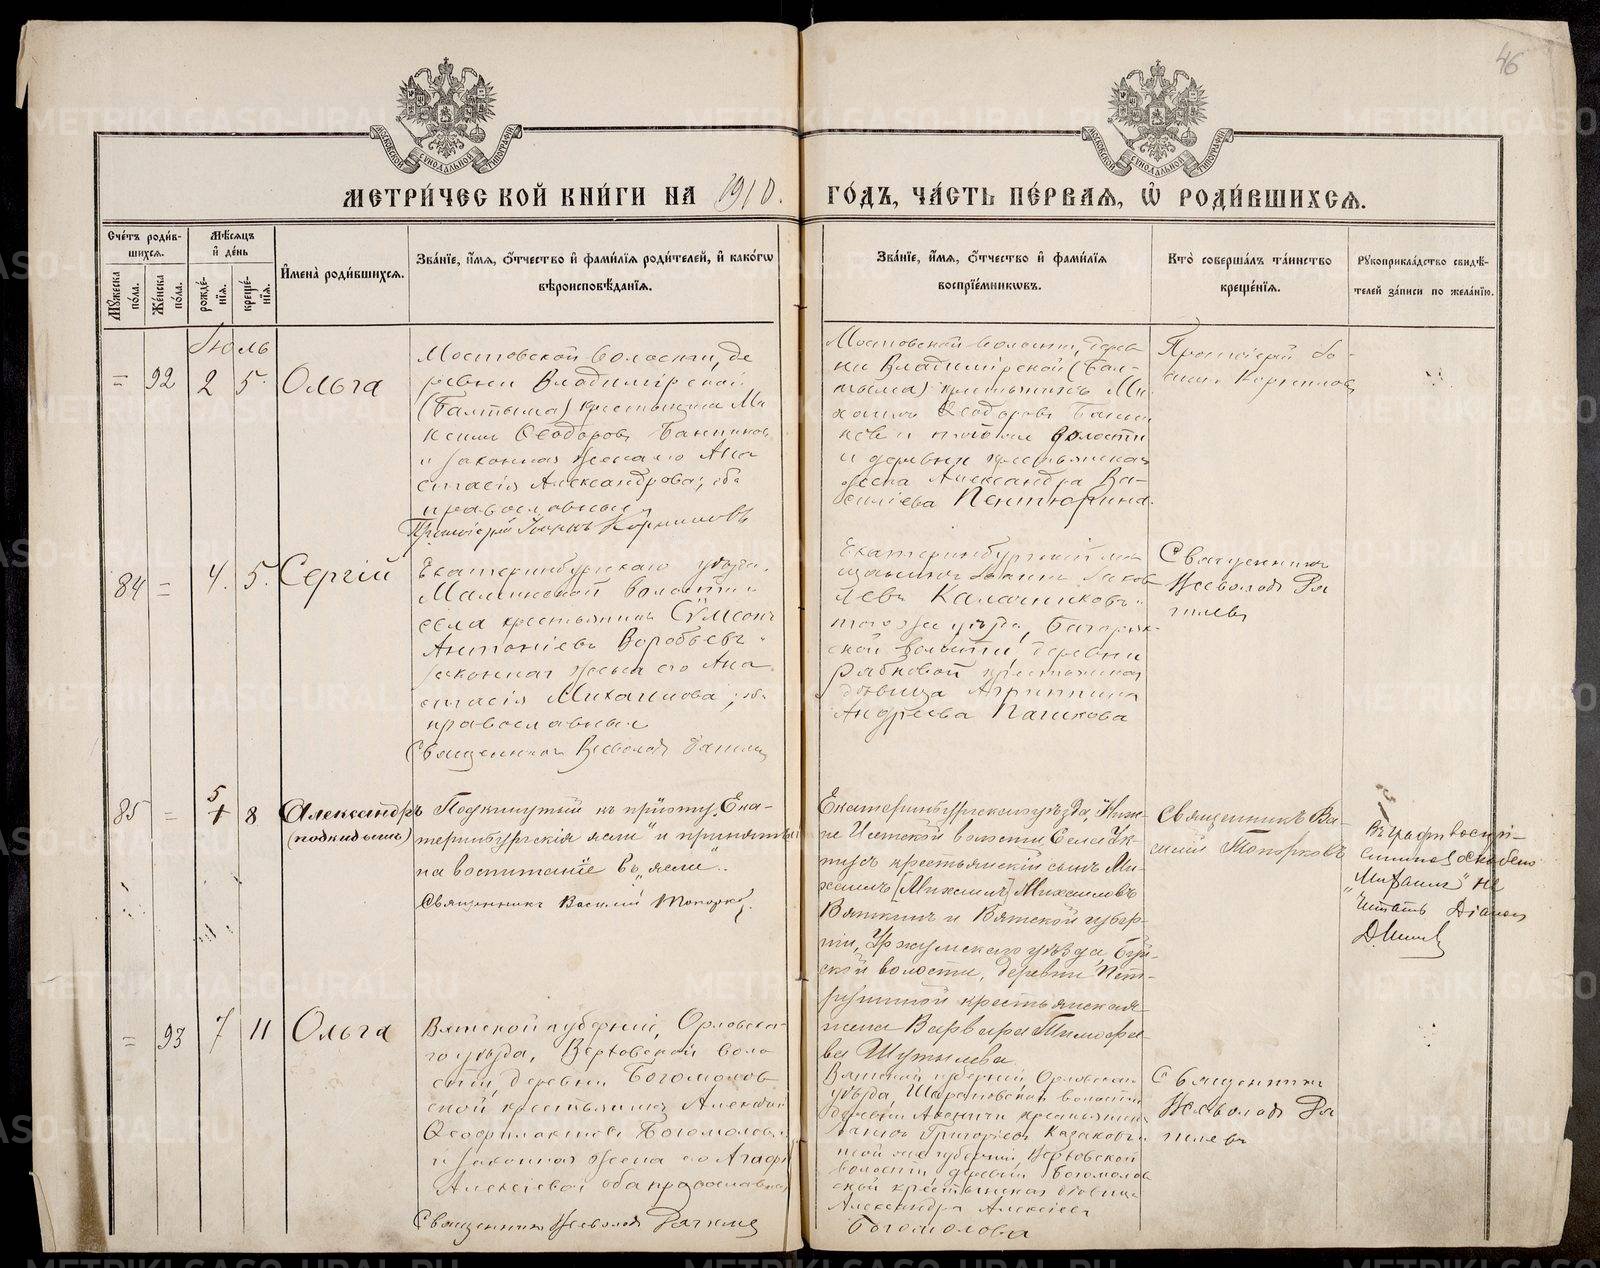 46
МОСКОВСКОЙ СѴНОДАЛЬНОЙ ТИПОГРАФІИ
МОСКОВСКОЙ СѴНОДАЛЬНОЙ ТИПОГРАФІИ
МЕТРИ́ЧЕС КОЙ КНИ́ГИ НА 1910. ГО́ДЪ, ЧА́СТЬ ПЕ́РВАѦ, Ѡ҆ РОДИ́ВШИХСѦ.
Сче́тъ роди́в-
шихсѧ.
Мꙋ́жеска по́ла.
Же́нска по́ла.
Мѣ́сѧцъ
и҆ де́нь
рожде́-
нїѧ.
креще́-
нїѧ.
И҆мена̀ роди́вшихсѧ.
Зва́нїе, и҆́мѧ, ѻ҆́тчество и҆ фами́лїѧ роди́телей, и҆ како́гѡ
вѣроисповѣ́данїѧ.
Зва́нїе, и҆́мѧ, ѻ҆́тчество и҆ фами́лїѧ
воспрїе́мникѡвъ.
Кто̀ соверша́лъ та́инство
креще́нїѧ.
Рꙋкоприкла́дство свидѣ́-
телей за́писи по жела́нїю.
Іюль
= 92 2 5. Ольга
Мостовской волости, де
ревни Владимірской
(Балтыма) крестьянина Ми
Ѳеодоровъ
и законная жена его Ана
стасія Александрова; оба
православные
Протоіерей Іоаннъ Корниловъ
Мостовской волости, дерев
ни Владимірской (Бал-
тыма) крестьянинъ Ми-
хаилъ Ѳеодоровъ
и той же волости
и деревни крестьянская
Александра Ва-
сильева Пентюрина.
Протоіерей Іо-
аннъ Корниловъ
84 = 4. 5. Сергій
Екатеринбургскаго уѣзда,
волости и
села крестьянинъ Сѵмеонъ
Антоніевъ Воробьевъ и
законная жена его Ана
стасія Михаилова; об.
православные
Священникъ Всеволодъ
Екатеринбургскій мѣ
щанинъ Іоаннъ Іаков
левъ Калачниковъ и
того же уѣзда, Багаряк-
ской волости деревни
крестьянская
дѣвица Агриппина
Андреева Пашкова
Священникъ
Всеволодъ
85 = 5 8 Александръ
(подкидышъ)
Подкинутый къ пріюту „Ека-
теринбургскія ясли" и принятый
на воспитаніе въ „ясли".
Священникъ Василій Топорковъ.
Екатеринбургскаго уѣзда, Ниж-
не Исетской волости, Села Ук-
тусъ крестьянскій сынъ Ми-
хаилъ [Михаилъ] Михаиловъ
Вяткинъ и Вятской губер-
ніи, Уржумскаго уѣзда, Буй-
ской волости, деревни Пет-
крестьянская
жена Варвара Тимофе-
ва Шутылева
Священникъ Ва-
силій Топорковъ
Въ графѣ воспрі-
слово
„Михаилъ" не
читать Діаконъ
= 93 7 11 Ольга
Вятской губерніи, Орловска-
го уѣзда, Верховской воло
сти, деревни Богомолов
ской крестьянинъ Алексѣй
Ѳеофилактовъ Богомоловъ
и законная жена его Агафія
Алексіева, оба православные
Священникъ Всеволодъ
Вятской губерніи, Орловскаго
уѣзда, волости
деревни крестьянинъ
Григоріевъ Казаковъ и
той же губерніи, Верховской
волости деревни Богомолов
ской крестьянская дѣвица
Александра Алексіева
Богомолова
Священникъ
Всеволодъ
METRIKI.GASO-URAL.RU